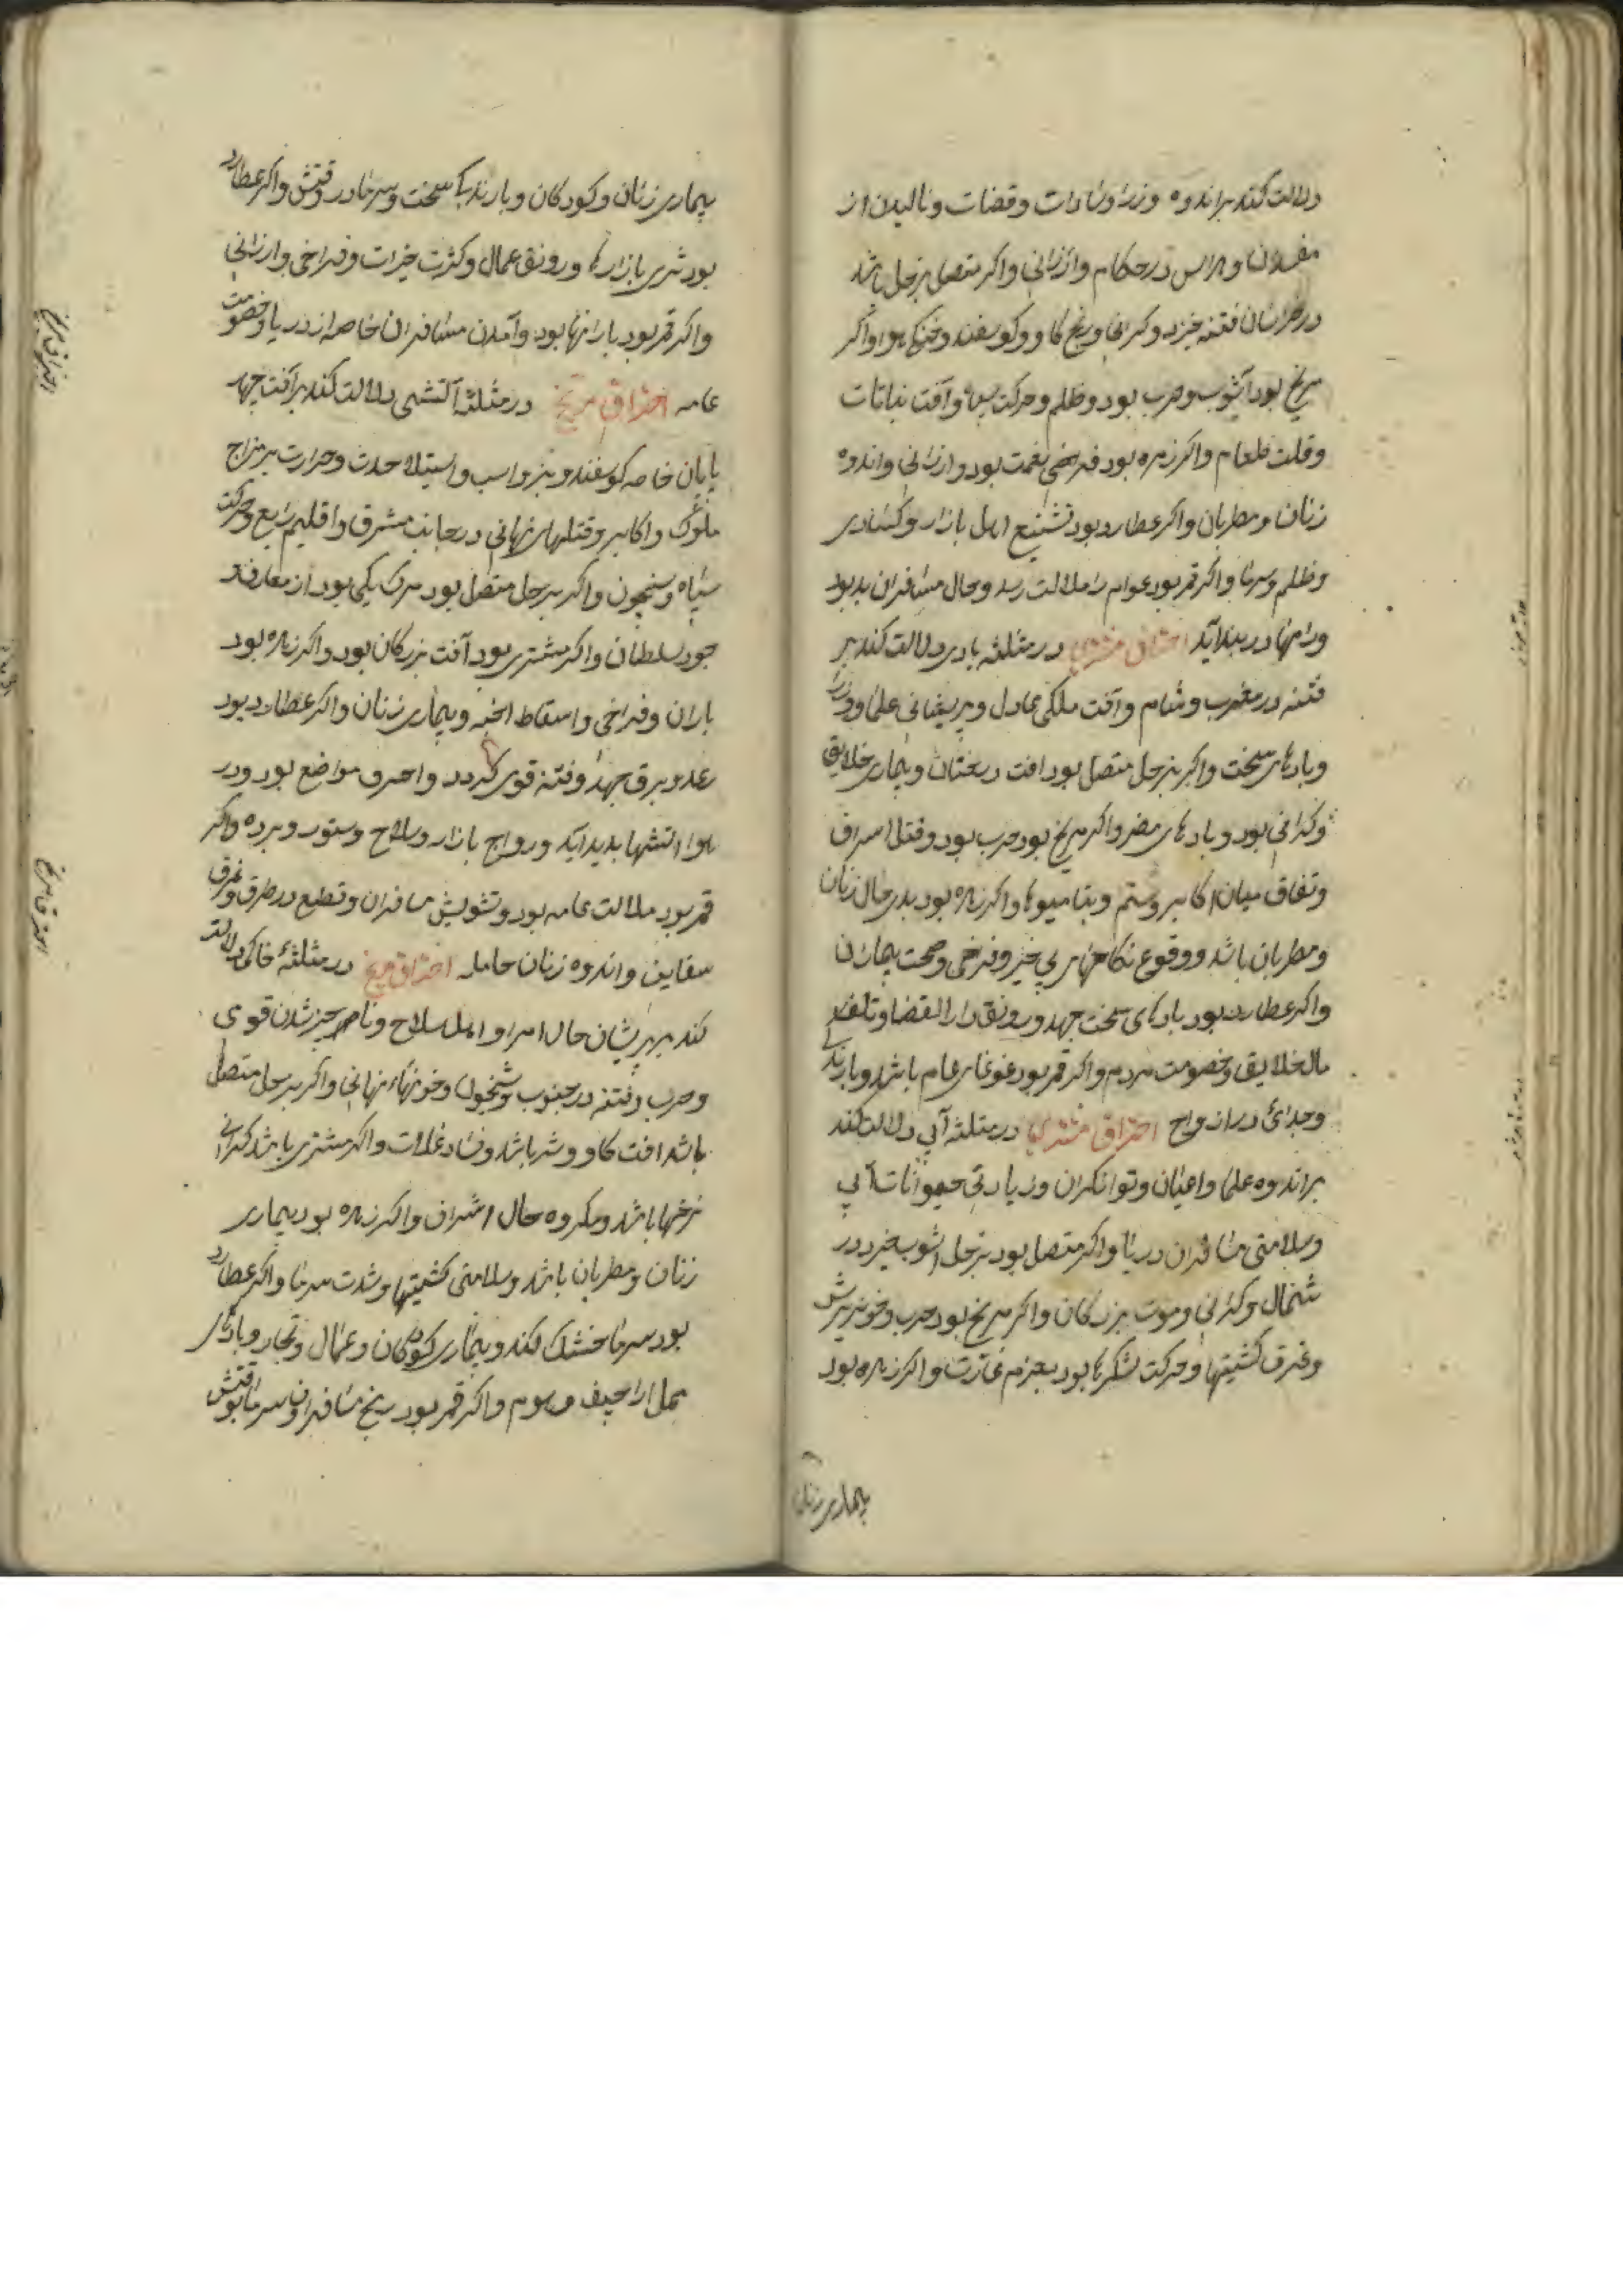 دلالت کند براندوه وزرا و سادات وقضات ونالیدن از
مفسدان وهراس در حکام وارزانی واکر متصل بزحل باشد
در خراسان فتنه خیزد وکرانی ورنج کاو وکوسفند وخنکی هوا واکر
مریخ بود آشوب وحرب بود وظلم وحرکت سپاه وآفت نباتات
وقلت طعام واکر زهره بود فراخی نعمت بود وارزانی واندوه
زنان ومطربان واکر عطارد بود تشنیع اهل بازار وکسادی
وظلم وسرما واکر قمر بود عوام را ملالت رسد وحال مسافران بد بود
وراهها در بند آید احتراق مشتری در مثلثه بادی دلالت کند بر
فتنه در مغرب وشام وآفت ملکی عادل وپریشانی علما ووزرا
وبادهای سخت واکر بزحل متصل بود افت درختان وبیماری خلایق
وکرانی بود وبادهای مضر واکر مریخ بود حرب بود وقتل اسراف
ونفاق میان اکابر وستم وتبا میوها واکر زهره بود بدی حال زنان
ومطربان باشد ووقوع نکاحهای بی خیر وفرخی وصحت بیماران
واکر عطارد بود بادهای سخت جهد ورونق دار القضا وتلف
مال خلایق وخصومت مردم واکر قمر بود غوغای عام باشد وبارندکی
وجدائی در ازواج احتراق مشتری در مثلثه آبی دلالت کند
براندوه علما واعیان وتوانکران وزیادتی حیوانات آبی
وسلامتی مسافران دریا واکر متصل بود بزحل اشوب خیزد در
شمال وکرانی وموت بزرکان واکر مریخ بود حرب وخونریزش
وغرق کشتیها وحرکت لشکرها بود بعزم غارت واکر زهره بود
بیماری زنان
بیماری زنان وکودکان وبارندکی سخت وسرما در وقتش واکر عطارد
بود شری بازارها ورونق عمال وکثرت خیرات وفراخی وارزانی
واکر قمر بود بارانها بود وآمدن مسافران خاصه از دریا وخصومت
عامه احتراق مریخ در مثلثه آتشی دلالت کند بر آفت چهار
پایان خاصه کوسفند وبز واسب واستیلاء حدت وحرارت بر مزاج
ملوک واکابر وقتلهای نهانی در جانب مشرق واقلیم رابع وحرکت
سپاه وشبیخون واکر بزحل متصل بود مرک یکی بود از معارف و
جور سلطان واکر مشتری بود آفت بزرکان بود واکر زهره بود
باران وفراخی واسقاط اجنه وبیماری زنان واکر عطارد بود
رعد وبرق جهد وفتنه قوی کردد واحرق مواضع بود ودر
هوا اتشها پدید آید ورواج بازار وسلاح وستور وبرده واکر
قمر بود ملالت عامه بود وتشویش مسافران وقطع در طرق وغرق
سفاین واندوه زنان حامله احتراق مریخ در مثلثهٔ خاکی دلالت
کند بر پریشان حال امرا واهل سلاح وناصر چیز شدن قوی
وحرب وفتنه در جنوب وشبیخون وخونهاء نهانی واکر بزحل متصل
باشد افت کاو وشر باشد وفساد غلات واکر مشتری باشد کرانی
نرخها باشد ومکروه حال اشراف واکر زهره بود بیماری
زنان ومطربان باشد وسلامتی کشتیها وشدت سرما واکر عطارد
بود سرما خشک کند وبیماری کودکان وعمال وتجار وبادهای
مهل اراجیف وبوم واکر قمر بود رنج مسافران وسرما بوقتش
احتراق مریخ
احتراق مریخ